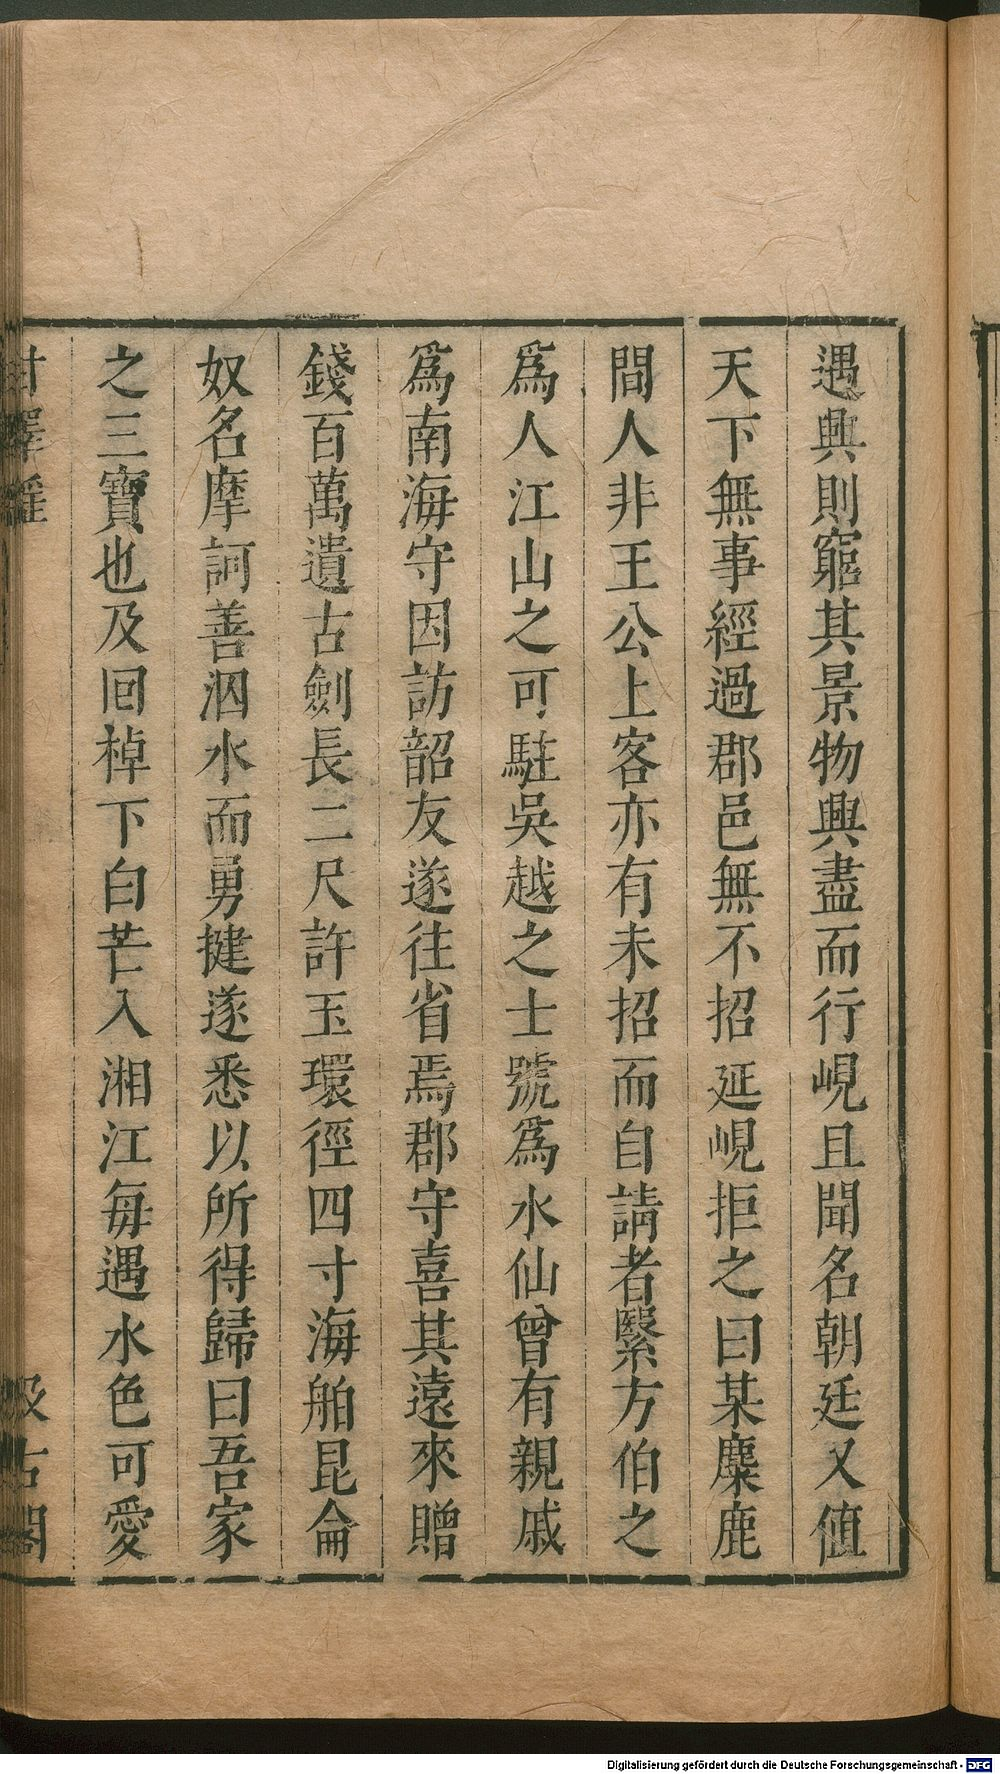 遇興則窮其景物興盡而行峴且聞名朝廷又值
天下無事經過郡邑無不招延峴拒之曰某麋鹿
間人非王公上客亦有未招而自請者繄方伯之
爲人江山之可駐吳越之士號爲水仙曾有親戚
爲南海守因訪韶友遂往省焉郡守喜其遠來贈
錢百萬遺古劍長二尺許玉環徑四寸海舶昆侖
奴名摩訶善泅水而勇揵遂悉以所得歸曰吾家
之三寶也及囘棹下白芒入湘江每遇水色可愛
甘澤謠
汲古閣
Digitalisierung gefördert durch die Deutsche Forschungsgemeinschaft - DFG